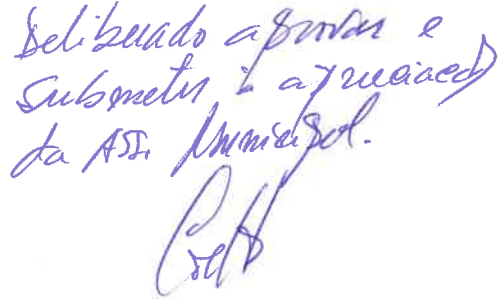 Deliberado aprovar e
submeter à apreciação
da Ass. Municipal.